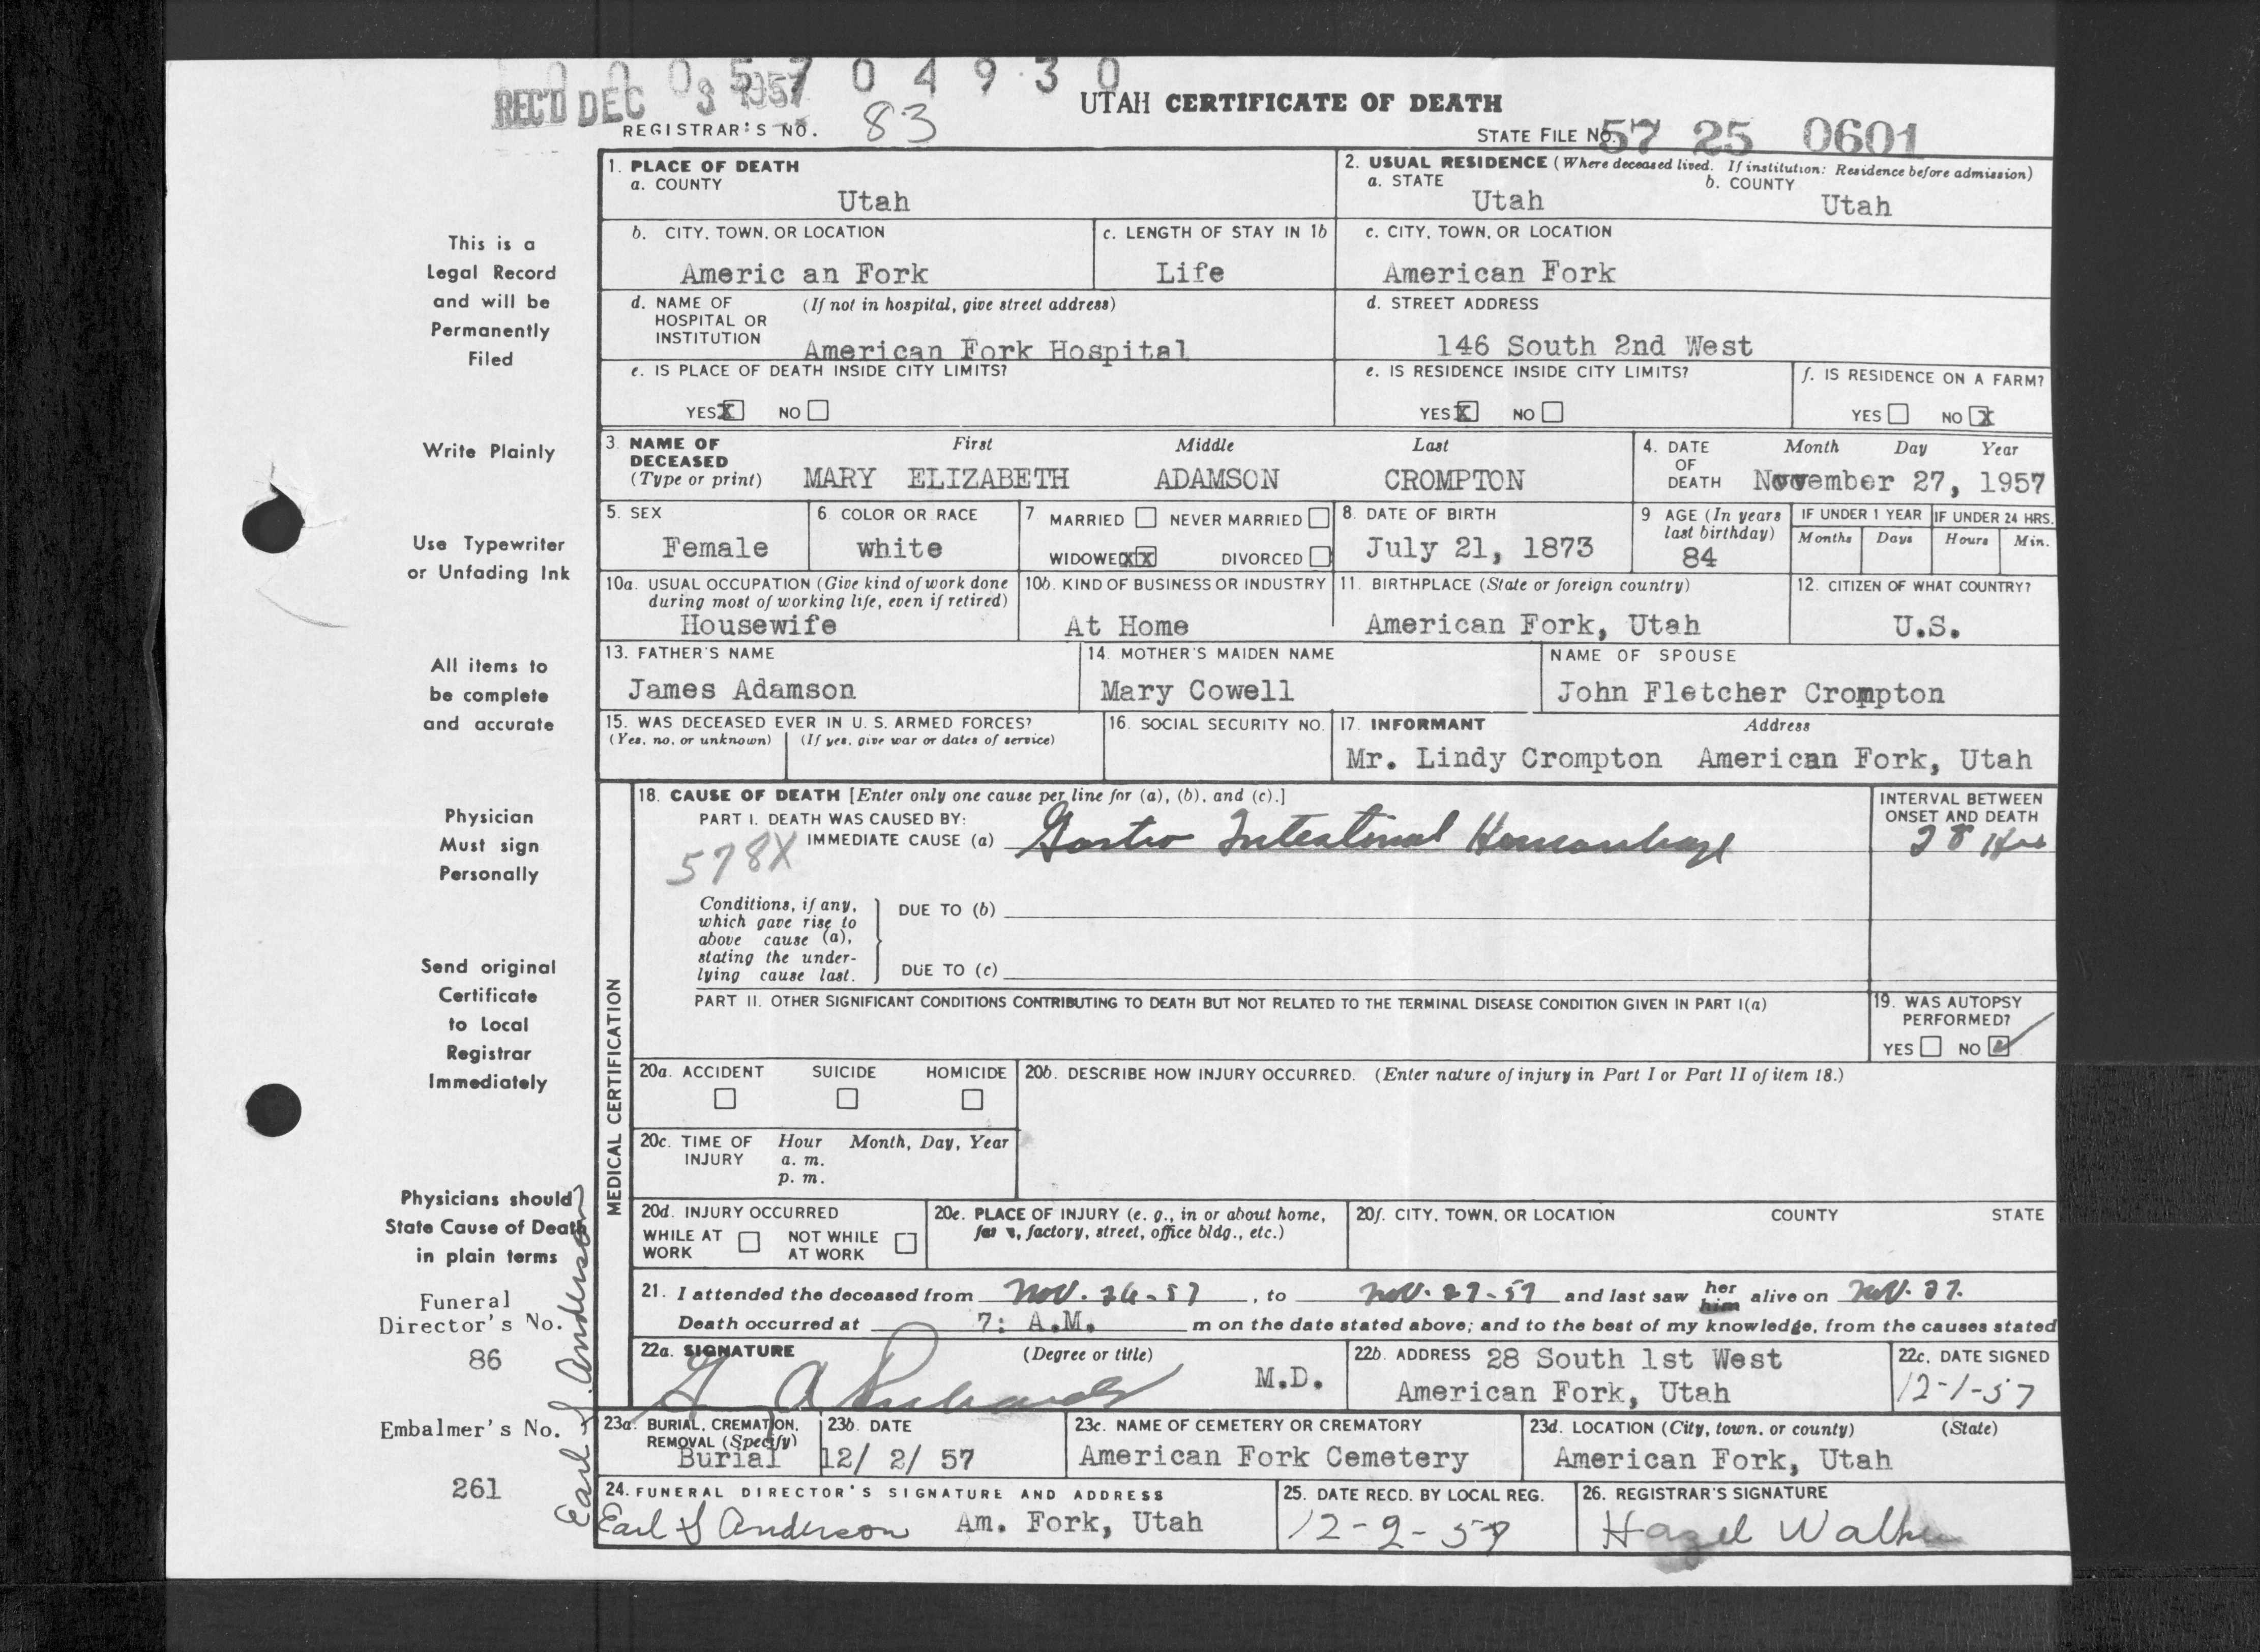 0 0 0 5 7 0 4 9 3 0
REC'D DEC 3 1957
REGISTRAR'S NO. 83
UTAH CERTIFICATE OF DEATH
STATE FILE NO. 57 25 0601
1. PLACE OF DEATH
a. COUNTY
Utah
2. USUAL RESIDENCE (Where deceased lived. If institution: Residence before admission)
a. STATE
Utah
b. COUNTY
Utah
b. CITY, TOWN, OR LOCATION
Americ an Fork
c. LENGTH OF STAY IN 1b
Life
c. CITY, TOWN, OR LOCATION
American Fork
d. NAME OF HOSPITAL OR INSTITUTION
(If not in hospital, give street address)
American Fork Hospital
d. STREET ADDRESS
146 South 2nd West
e. IS PLACE OF DEATH INSIDE CITY LIMITS?
YES X NO
e. IS RESIDENCE INSIDE CITY LIMITS?
YES X NO
f. IS RESIDENCE ON A FARM?
YES NO X
3. NAME OF DECEASED
(Type or print)
First Middle Last
MARY ELIZABETH ADAMSON CROMPTON
4. DATE OF DEATH
Month Day Year
November 27, 1957
5. SEX
Female
6. COLOR OR RACE
white
7 MARRIED NEVER MARRIED
WIDOWED XX DIVORCED
8. DATE OF BIRTH
July 21, 1873
9 AGE (In years last birthday)
84
IF UNDER 1 YEAR
Months Days
IF UNDER 24 HRS.
Hours Min.
10a. USUAL OCCUPATION (Give kind of work done during most of working life, even if retired)
Housewife
10b. KIND OF BUSINESS OR INDUSTRY
At Home
11. BIRTHPLACE (State or foreign country)
American Fork, Utah
12. CITIZEN OF WHAT COUNTRY?
U.S.
13. FATHER'S NAME
James Adamson
14. MOTHER'S MAIDEN NAME
Mary Cowell
NAME OF SPOUSE
John Fletcher Crompton
15. WAS DECEASED EVER IN U. S. ARMED FORCES?
(Yes, no, or unknown) (If yes, give war or dates of service)
16. SOCIAL SECURITY NO.
17. INFORMANT Address
Mr. Lindy Crompton American Fork, Utah
MEDICAL CERTIFICATION
18. CAUSE OF DEATH [Enter only one cause per line for (a), (b), and (c).]
PART I. DEATH WAS CAUSED BY:
IMMEDIATE CAUSE (a) Gastro Intestinal Hemorrhage
578X
INTERVAL BETWEEN ONSET AND DEATH
28 Hrs
Conditions, if any, which gave rise to above cause (a), stating the underlying cause last.
DUE TO (b)
DUE TO (c)
PART II. OTHER SIGNIFICANT CONDITIONS CONTRIBUTING TO DEATH BUT NOT RELATED TO THE TERMINAL DISEASE CONDITION GIVEN IN PART I(a)
19. WAS AUTOPSY PERFORMED?
YES NO
20a. ACCIDENT SUICIDE HOMICIDE
20b. DESCRIBE HOW INJURY OCCURRED. (Enter nature of injury in Part I or Part II of item 18.)
20c. TIME OF INJURY
Hour Month, Day, Year
a. m.
p. m.
20d. INJURY OCCURRED
WHILE AT WORK
NOT WHILE AT WORK
20e. PLACE OF INJURY (e. g., in or about home, farm, factory, street, office bldg., etc.)
20f. CITY, TOWN, OR LOCATION COUNTY STATE
21. I attended the deceased from Nov. 26-57, to Nov. 27-57 and last saw her him alive on Nov. 27.
Death occurred at 7: A.M. m on the date stated above; and to the best of my knowledge, from the causes stated
22a. SIGNATURE (Degree or title)
G A Richards M.D.
22b. ADDRESS 28 South 1st West
American Fork, Utah
22c. DATE SIGNED
12-1-57
23a. BURIAL, CREMATION, REMOVAL (Specify)
Burial
23b. DATE
12/ 2/ 57
23c. NAME OF CEMETERY OR CREMATORY
American Fork Cemetery
23d. LOCATION (City, town, or county) (State)
American Fork, Utah
24. FUNERAL DIRECTOR'S SIGNATURE AND ADDRESS
Earl S Anderson Am. Fork, Utah
25. DATE RECD. BY LOCAL REG.
12-2-57
26. REGISTRAR'S SIGNATURE
Hazel Walker
This is a
Legal Record
and will be
Permanently
Filed
Write Plainly
Use Typewriter
or Unfading Ink
All items to
be complete
and accurate
Physician
Must sign
Personally
Send original
Certificate
to Local
Registrar
Immediately
Physicians should
State Cause of Death
in plain terms
Funeral
Director's No.
86
Embalmer's No.
261
Earl S. Anderson